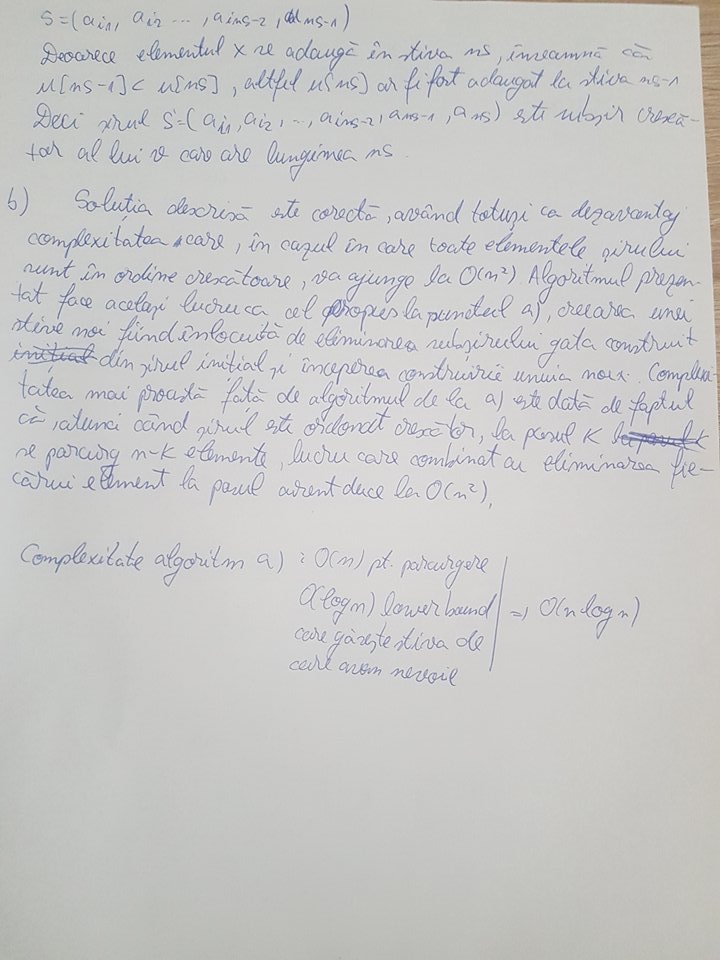 S=(ai1, ai2 ..., ains-2, ans-1)
Deoarece elementul x se adaugă în stiva ns, înseamnă că
u[ns-1] < u[ns], altfel u[ns] ar fi fost adaugat la stiva ns-1
Deci șirul S'=(ai1, ai2, ..., ains-2, ans-1, ans) este subșir crescă-
tor al lui v care are lungimea ns.
b) Soluția descrisă este corectă, având totuși ca dezavantaj
complexitatea care, în cazul în care toate elementele șirului
sunt în ordine crescătoare, va ajunge la O(n²). Algoritmul prezen-
tat face același lucru ca cel propus la punctul a), creearea unei
stive noi fiind înlocuită de eliminarea subșirului gata construit
inițial din șirul inițial și începerea construirii unuia nou. Complexi-
tatea mai proastă față de algoritmul de la a) este dată de faptul
că, atunci când șirul este ordonat crescător, la pasul K la pasul K
se parcurg n-K elemente, lucru care combinat cu eliminarea fie-
cărui element la pasul curent duce la O(n²).
Complexitate algoritm a) : O(n) pt. parcurgere
O(log n) lower bound => O(n log n)
care găsește stiva de
care avem nevoie